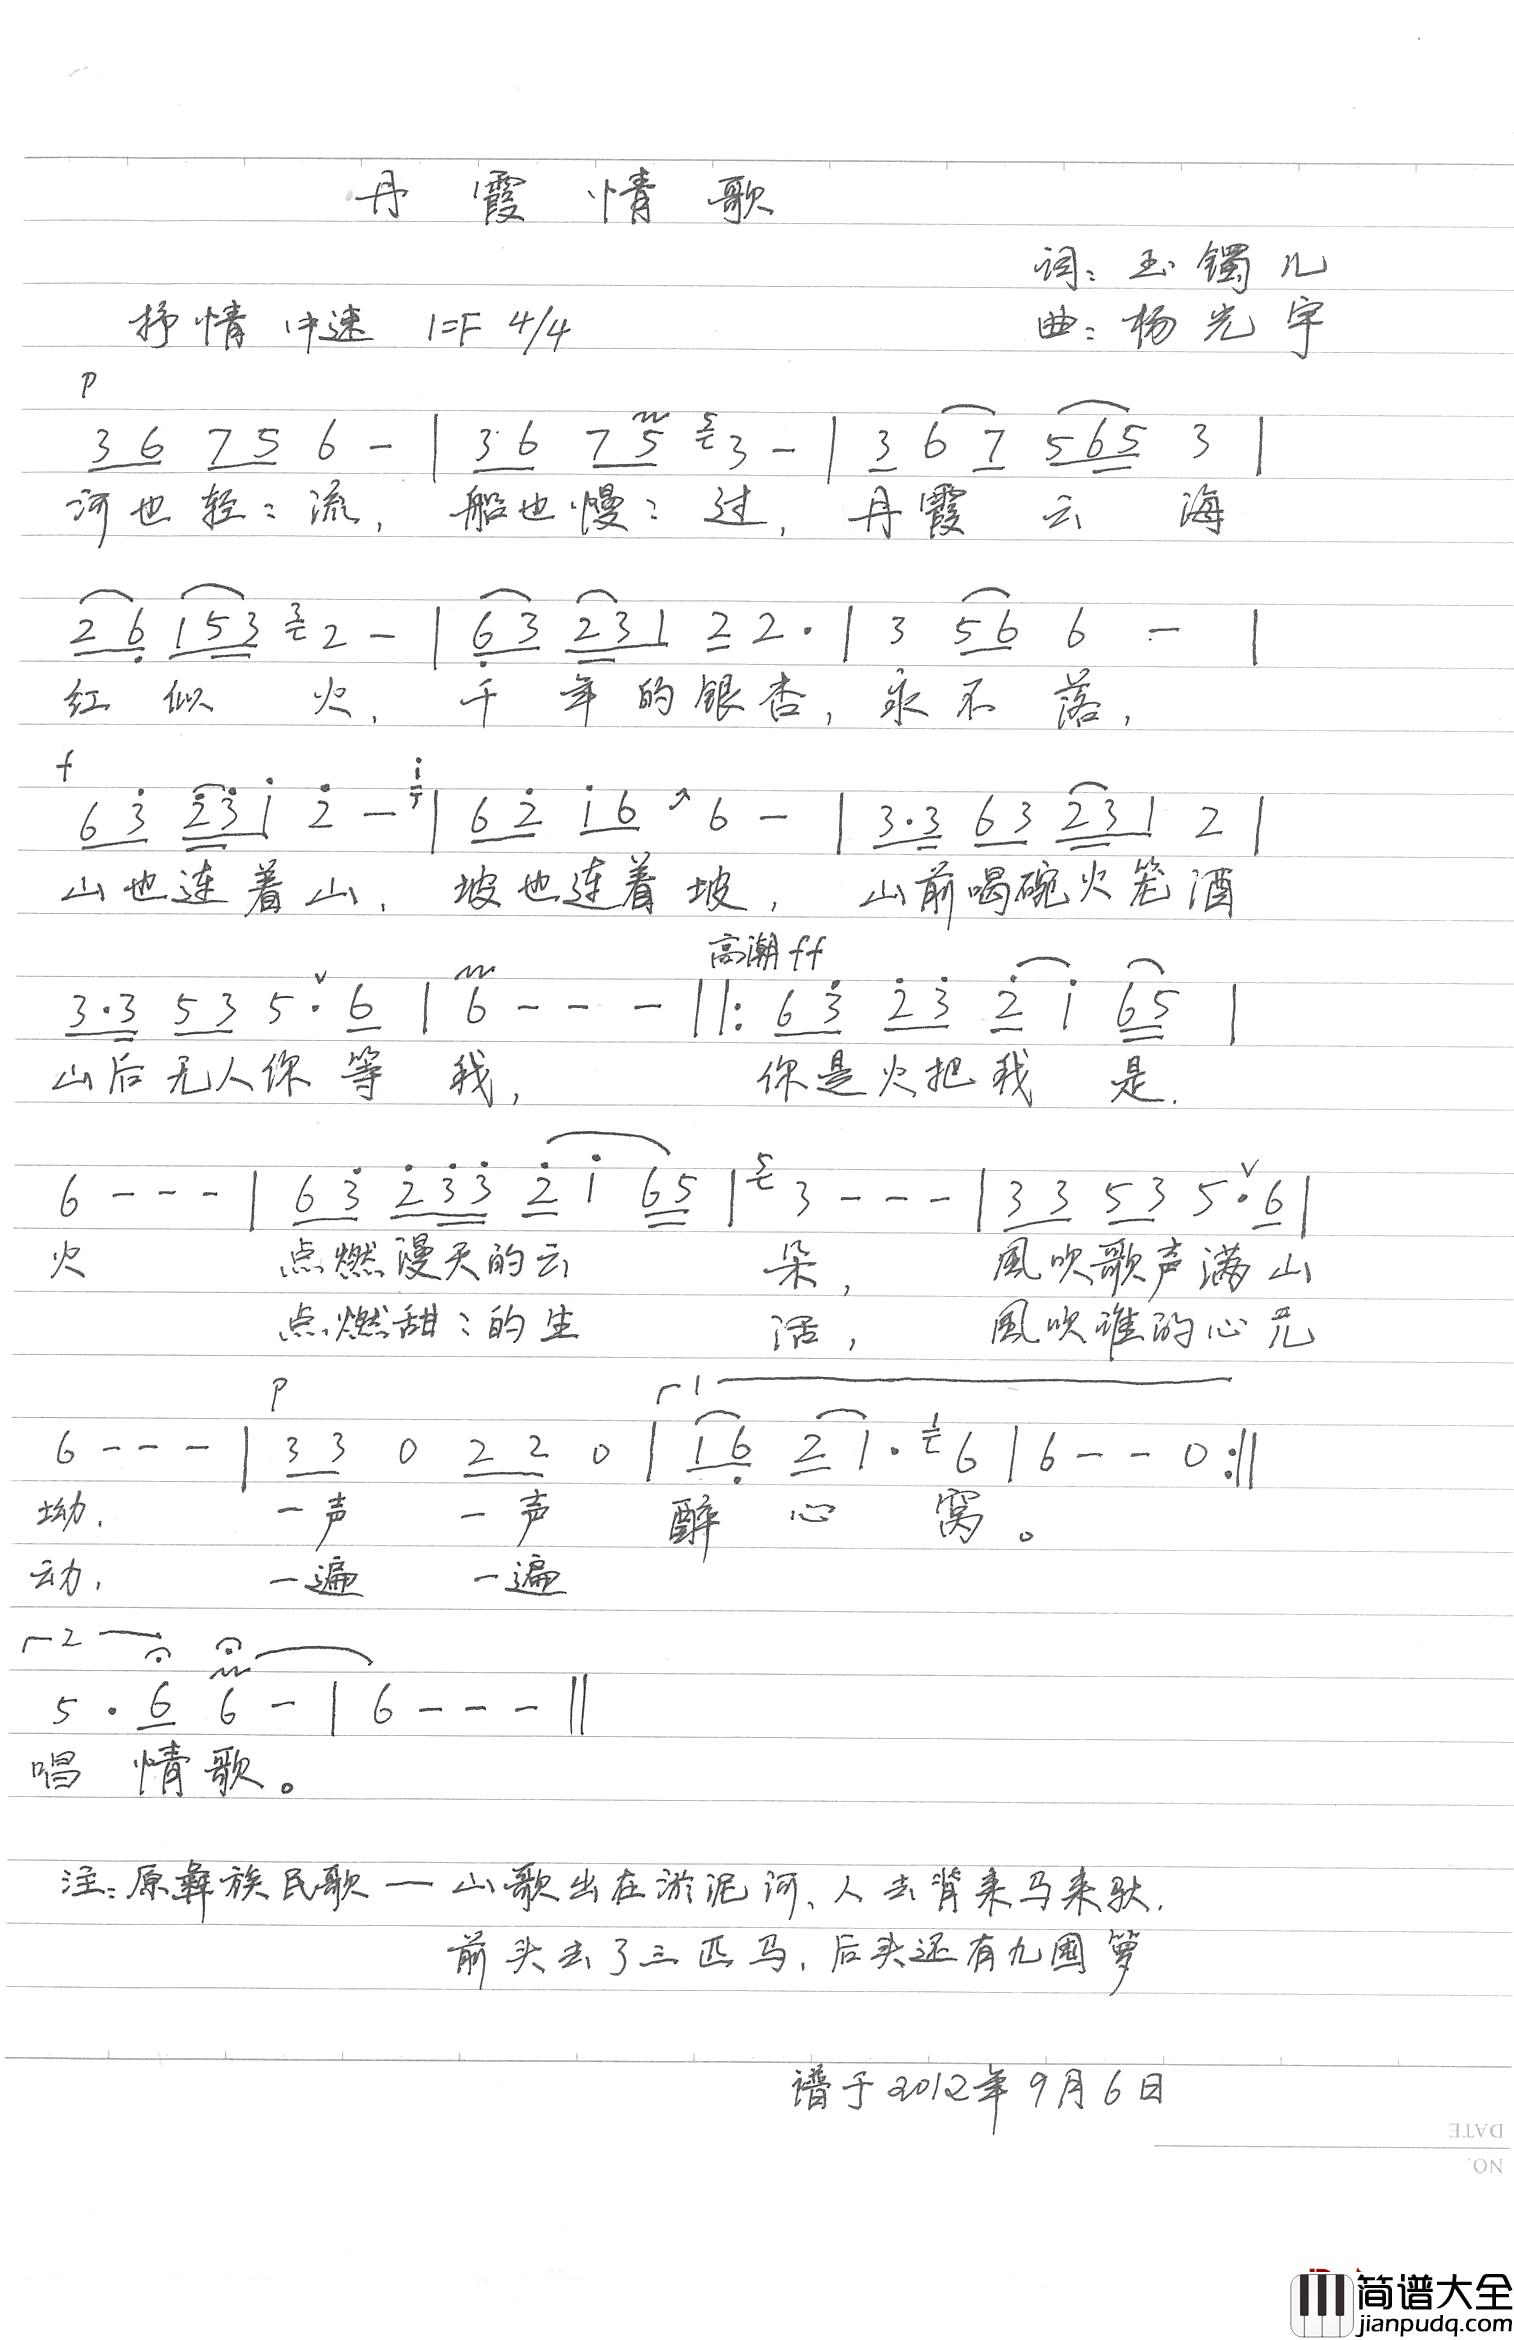 丹霞情歌
词：玉镯儿
抒情 中速 1=F 4/4
曲：杨光宇
p
3 6 7 5 6 - | 3 6 7 5 5 3 - | 3 6 7 5 6 5 3 |
河也轻：流， 船也慢：过， 丹霞云海
2 6 1 5 3 3 2 - | 6 3 2 3 1 2 2 · | 3 5 6 6 - |
红似火， 千年的银杏， 永不落，
f
6 3 2 3 1 2 - i | 6 2 1 6 6 - | 3 · 3 6 3 2 3 1 2 |
山也连着山， 坡也连着坡， 山前喝碗火笼酒
高潮 ff
3 · 3 5 3 5 · 6 | 6 - - - ||: 6 3 2 3 2 1 6 5 |
山后无人你等我， 你是火把我是.
6 - - - | 6 3 2 3 3 2 1 6 5 | 5 3 - - - | 3 3 5 3 5 · 6 |
火 点燃漫天的云朵， 風吹歌声满山
点燃甜：的生活， 風吹谁的心咒
p ┌1
6 - - - | 3 3 0 2 2 0 | 1 6 2 1 · 1 6 | 6 - - 0 :||
坳. 一声 一声 醉心窝。
动. 一遍 一遍
┌2
5 · 6 6 - | 6 - - - ||
唱情歌。
注：原彝族民歌—山歌出在淤泥河、人去背来马来驮.
前头去了三匹马，后头还有九囤箩
谱于2012年9月6日
DATE
NO.
简谱大全
jianpudq.com